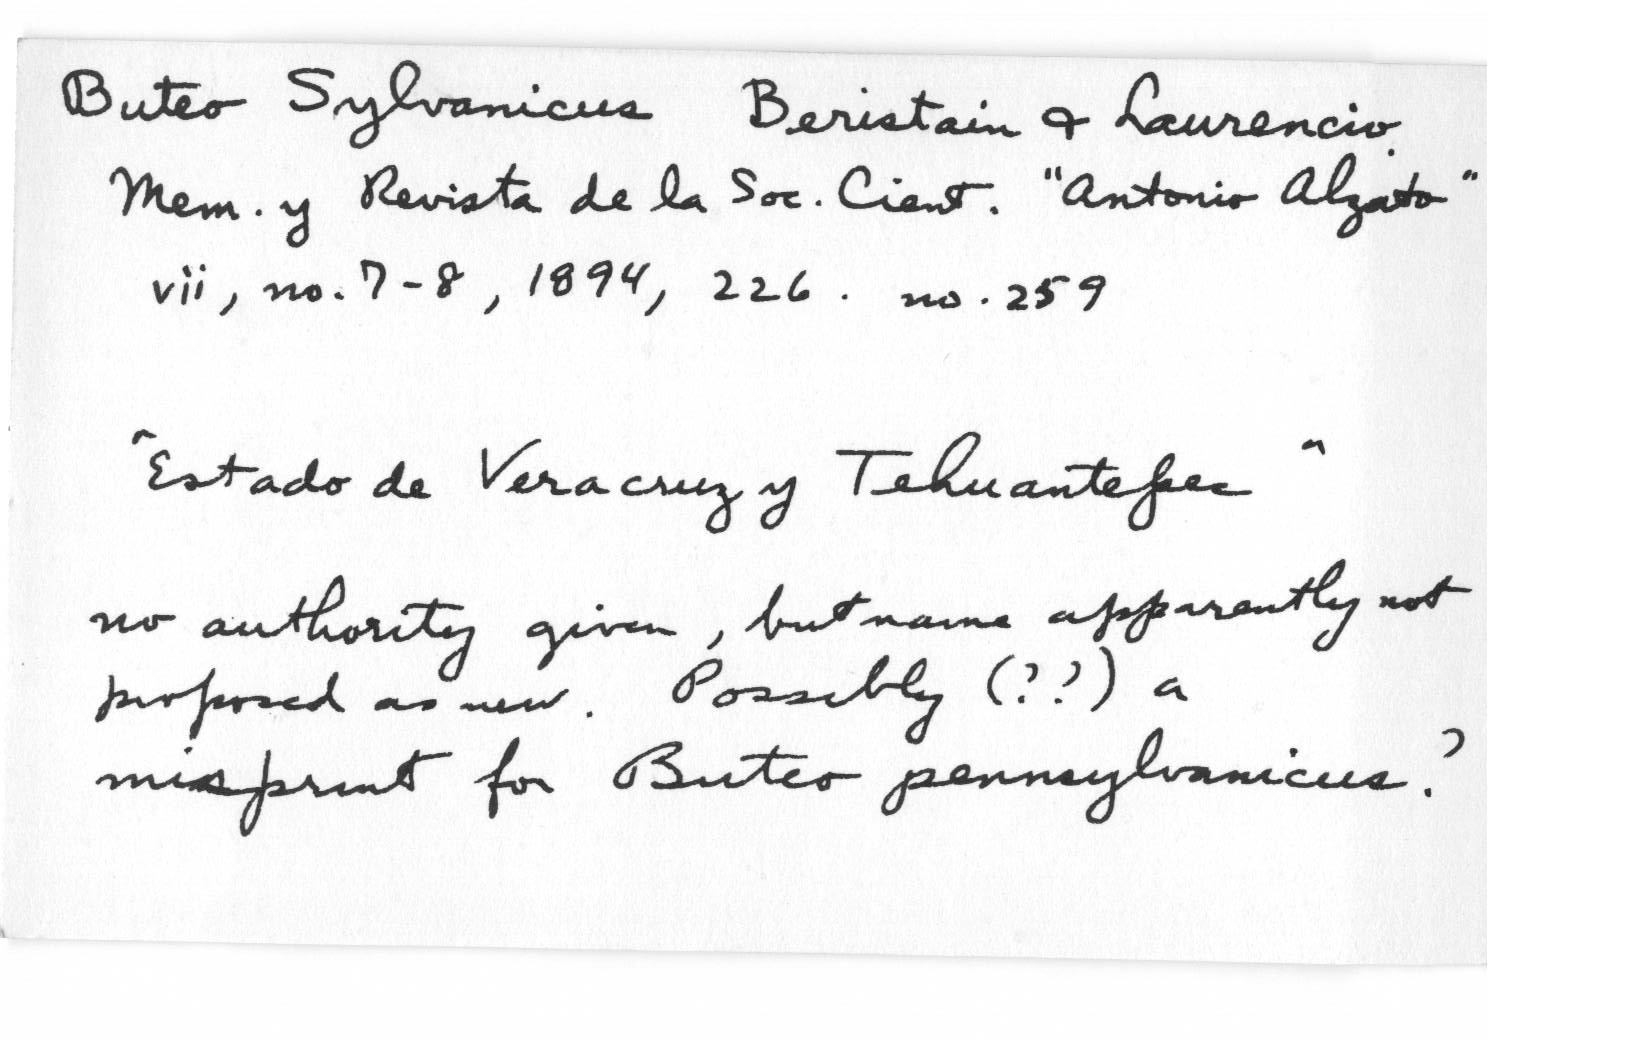 Buteo Sylvanicus Beristain & Laurencio.
Mem. y Revista de la Soc. Cient. "Antonio Alzato"
vii, no. 7-8, 1894, 226. no. 259
"Estado de Veracruz y Tehuantepec"
no authority given, but name apparently not
proposed as new. Possibly (??) a
misprint for Buteo pennsylvanicus.?